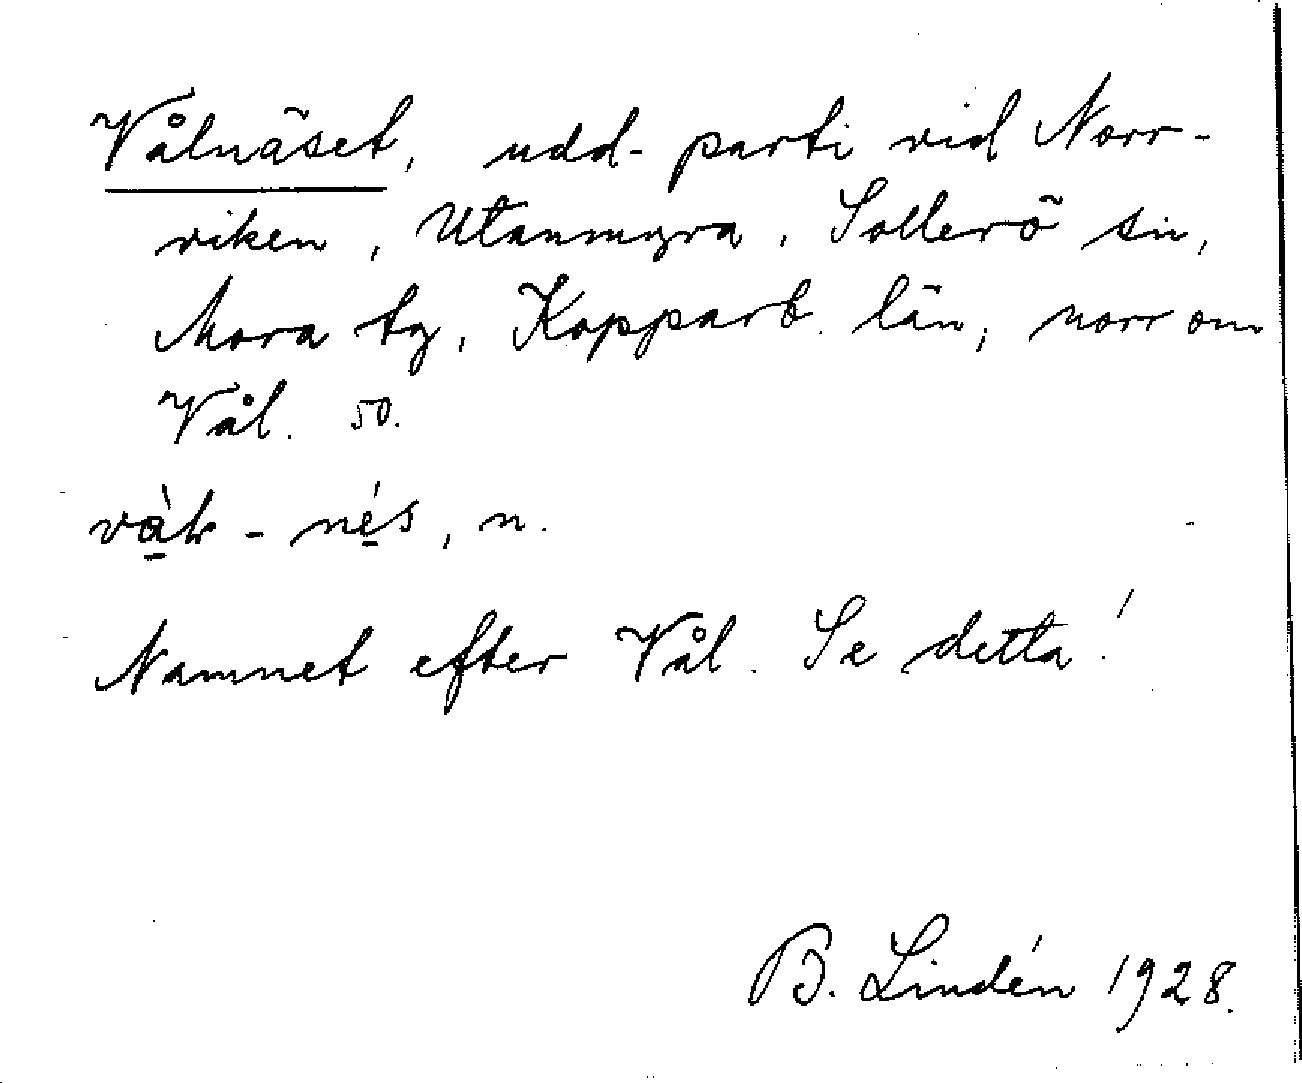 Vålnäset, udd-parti vid Norr-
viken, Utanmyra, Sollerö sn,
Mora tg, Kopparb. län; norr om
Vål. 50.
nés, n.
Namnet efter Vål. Se detta!
B. Lindén 1928.